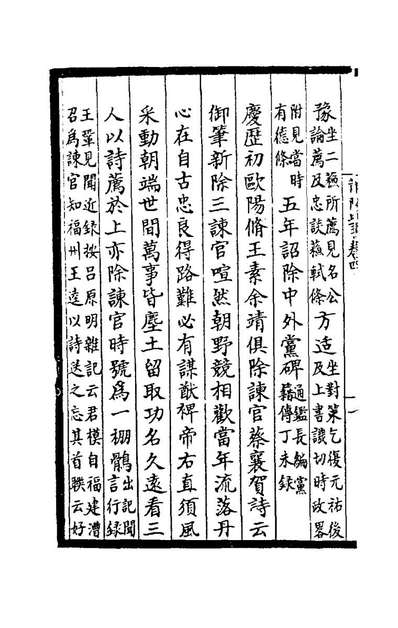 豫坐二蘇所薦見名公論薦及忠談蘇軾條方适坐對策乞復元祐後及上書譏切時政畧
附見當時有德條五年詔除中外黨碑通鑑長編黨籍傳丁未錄
慶歷初歐陽脩王素余靖俱除諫官蔡襄賀詩云
御筆新除三諫官喧然朝野競相歡當年流落丹
心在自古忠良得路難必有謀猷裨帝右直須風
采動朝端世間萬事皆塵土留取功名久遠看三
人以詩薦於上亦除諫官時號爲一棚鶻出記聞言行錄
王鞏見聞近錄按呂原明雜記云君模自福建漕
召爲諫官知福州王逵以詩送之忘其首聯云好